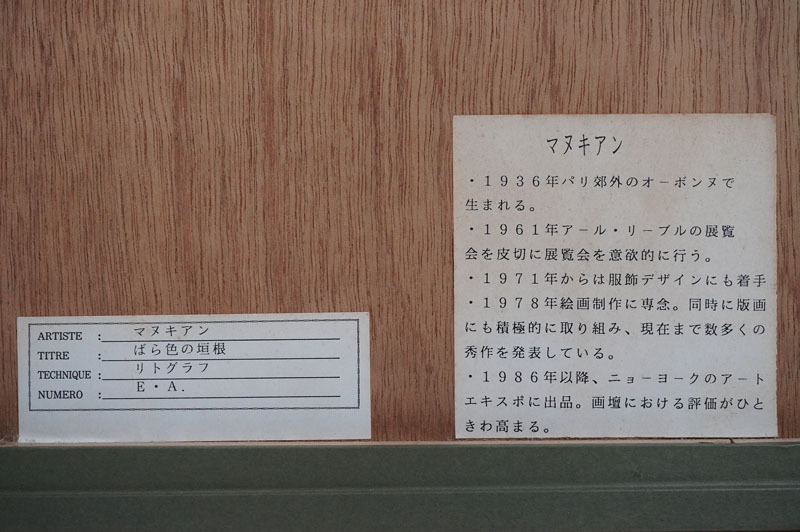 ARTISTE : マヌキアン
TITRE : ばら色の垣根
TECHNIQUE : リトグラフ
NUMERO : E・A.
マヌキアン
・1936年パリ郊外のオーボンヌで
生まれる。
・1961年アール・リーブルの展覧
会を皮切に展覧会を意欲的に行う。
・1971年からは服飾デザインにも着手
・1978年絵画制作に専念。同時に版画
にも積極的に取り組み、現在まで数多くの
秀作を発表している。
・1986年以降、ニョーヨークのアート
エキスポに出品。画壇における評価がひと
きわ高まる。